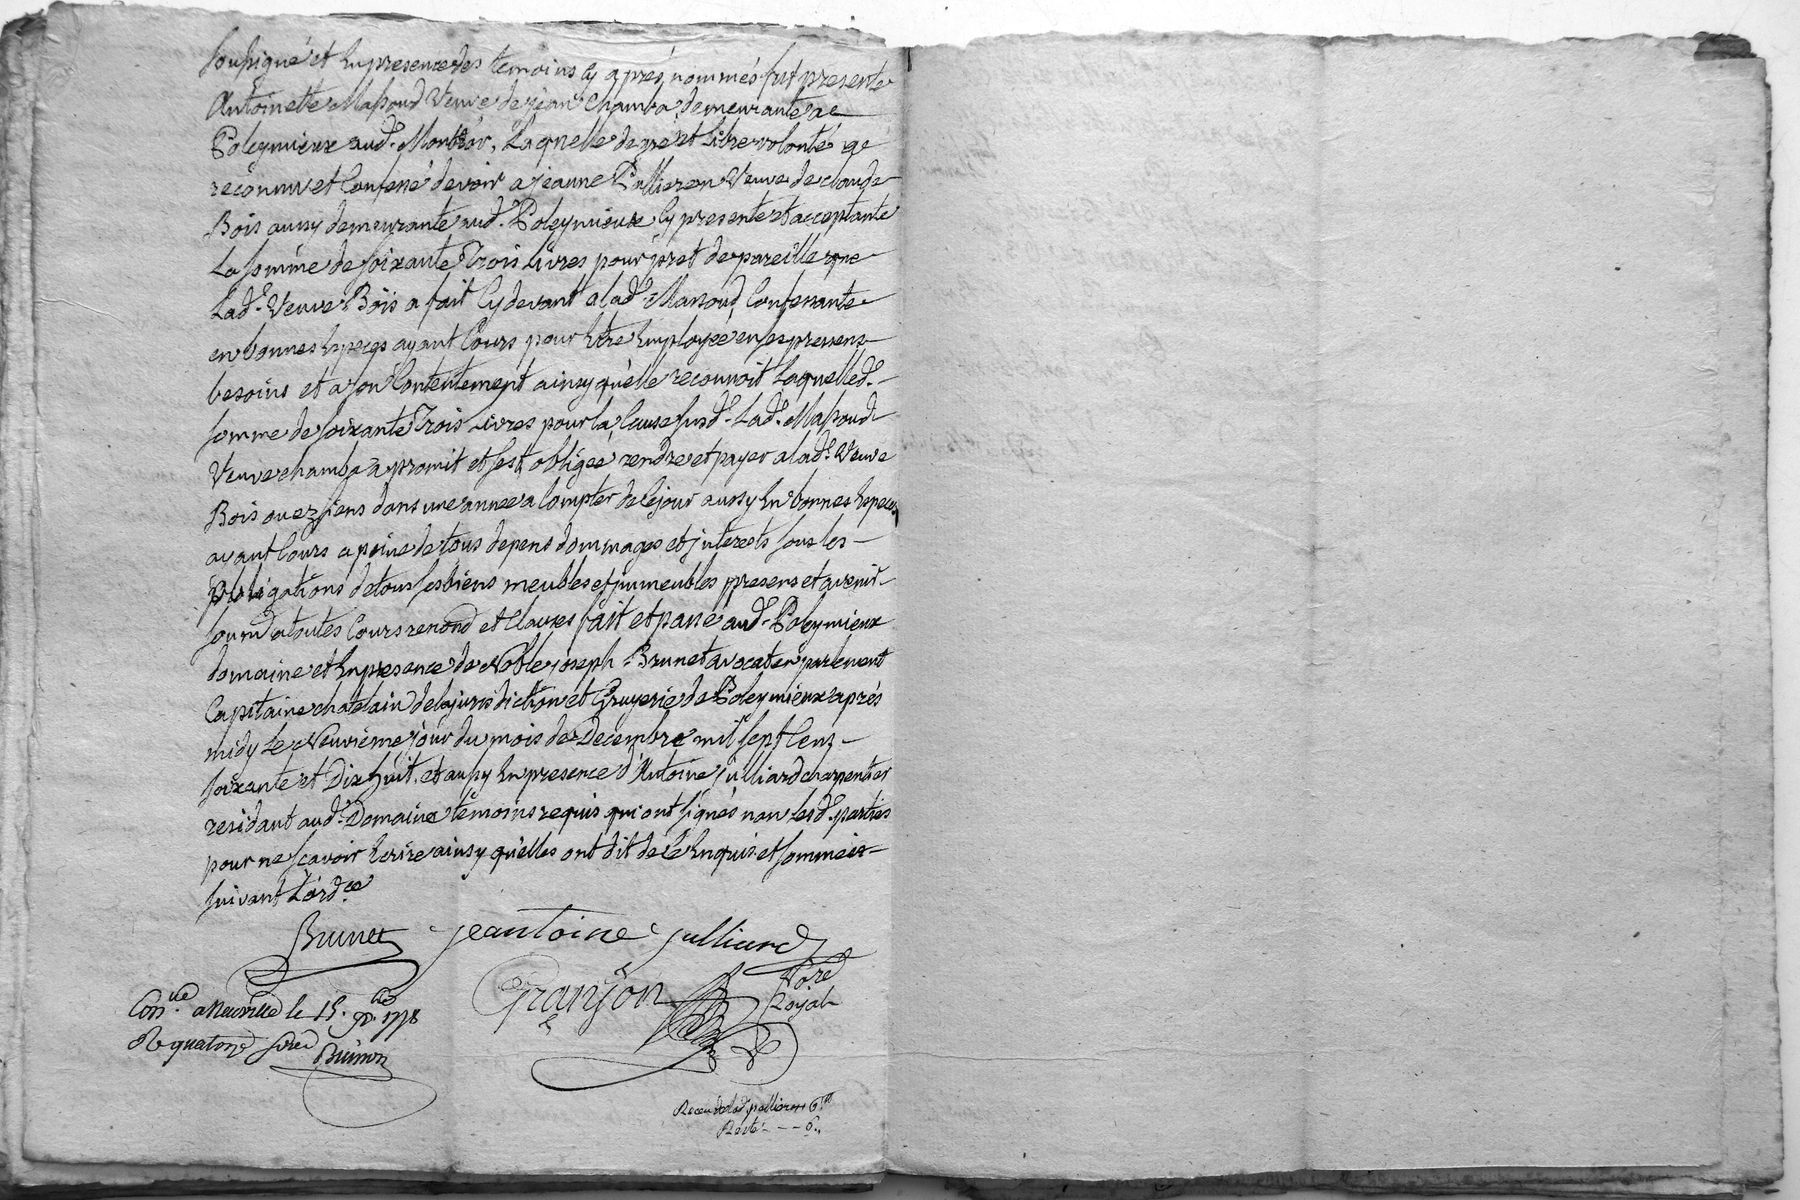 soussigné et En presence des temoins Cy après nommés fut presente
Antoinette Massoud Veuve de jean Chamba demeurante ae
Poleymieux aud. Montdor, Laquelle de gré et Libre volonté ae
reconnu et Confessé devoir a jeanne Pallieron Veuve de claude
Bois aussy demeurante aud. Poleymieux Cy presente et acceptante
La somme de soixante Trois Livres pour pret de pareille que
Lad.e Veuve Bois a fait Cy devant a lad.e Massoud, Contenante
en bonnes Especes ayant Cours pour Etre Employée en ses pressens
besoins et a son Contentement ainsy quelle reconnoit Laquelled.e
somme de soixante Trois Livres pour la Cause susd.e Lad.e Massoud
Veuve chamba a promit et s'est obligée rendre et payer a lad.e Veuve
Bois ou ez siens dans une année a Compter de Ce jour aussy En bonnes Especes
ayant Cours a peine de tous depens dommages et interests sous les
obligations de tous ses biens meubles et immeubles presens et avenir
soumis a toutes Cours renond et Clauses fait et passé aud. Poleymieux
domaine et En presence de Noble joseph Brunet avocat en parlement
Capitaine chatelain de la jurisdiction et Gruyerie de Poleymieux après
midy Le Neuvieme jour du mois de Decembre mil sept Cens
soixante et Dix huit, et aussy En presence d'Antoine julliard charpentier
residant aud. Domaine temoins requis qui ont signés non Lesd. parties
pour ne scavoir Ecrire ainsy qu'elles ont dit de Ce Enquis et sommées
suivant L'ord.ce
Brunet jeantoine julliard
Granjon Nore
Royal
Con.lle a Neuville le 15. xbre 1778
R quatorze sous
Buisson
Receu de lad. pallieron 6 lt
Reste - - - 6 s.